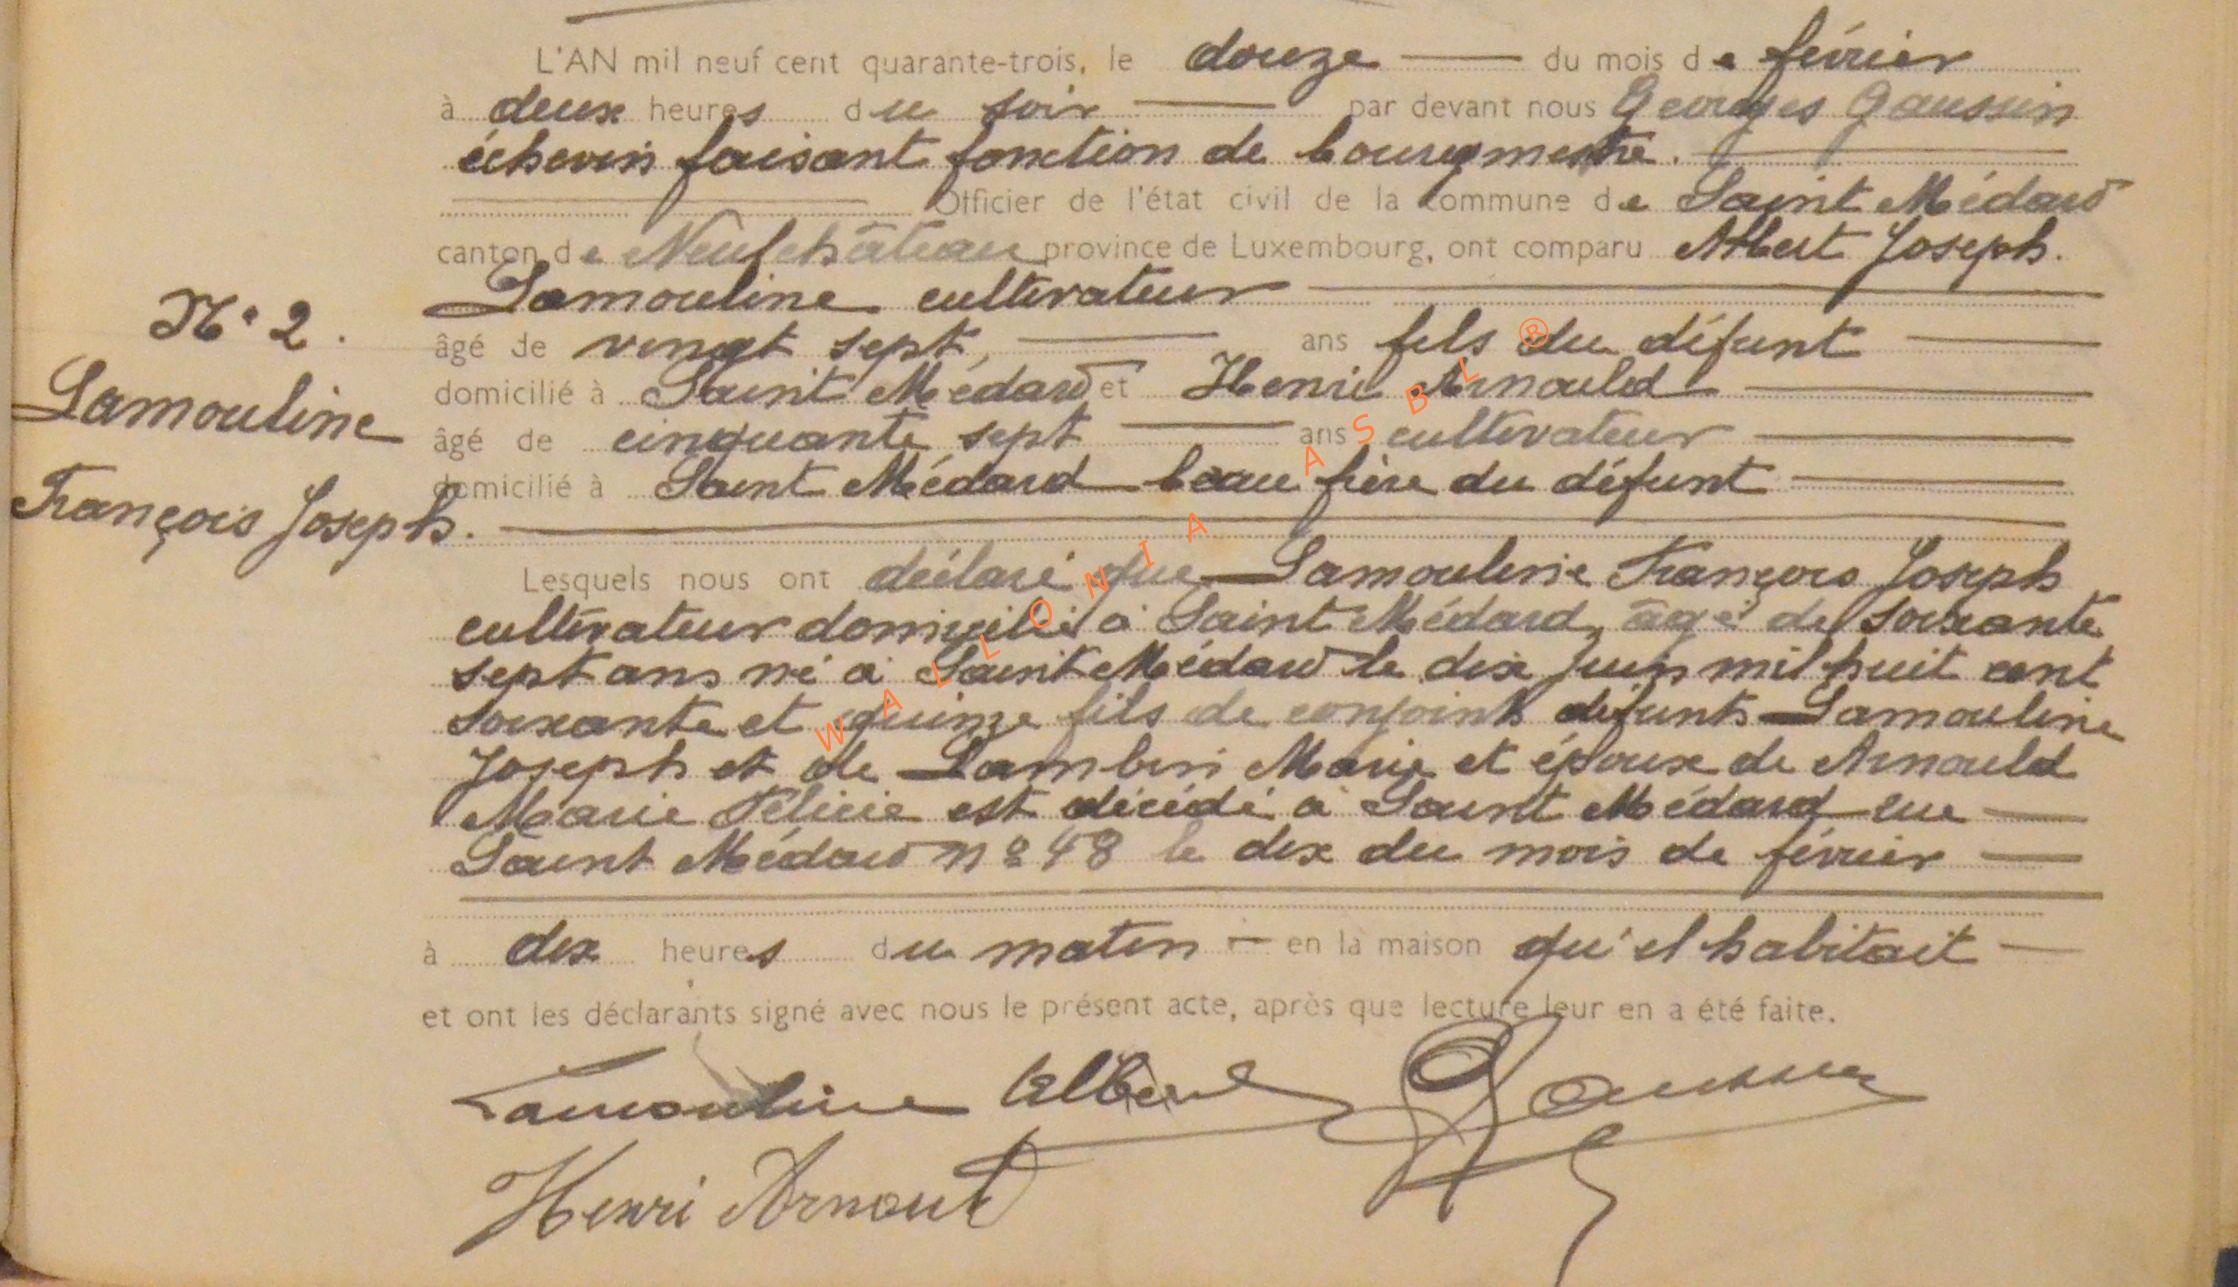 L'AN mil neuf cent quarante-trois, le douze du mois de février
à deux heures du soir par devant nous Georges Gaussin
échevin faisant fonction de bourgmestre.
Officier de l'état civil de la commune de Saint Médard
canton de Neufchâteau province de Luxembourg, ont comparu Albert Joseph.
Lamouline cultivateur
N° 2.
âgé de vingt sept, ans fils du défunt
Lamouline
domicilié à Saint Médard et Henri Arnould
âgé de cinquante sept ans cultivateur
domicilié à Saint Médard beau frère du défunt
François Joseph.
Lesquels nous ont déclaré que Lamouline François Joseph
cultivateur domicilié à Saint Médard, âgé de soixante
sept ans né à Saint Médard le dix juin mil huit cent
soixante et quinze fils de conjoints défunts Lamouline
Joseph et de Lambin Marie et époux de Arnould
Marie Félicie est décédé à Saint Médard rue
Saint Médard n° 48 le dix du mois de février
à dix heures du matin en la maison qu'il habitait
et ont les déclarants signé avec nous le présent acte, après que lecture leur en a été faite.
Lamouline Albert Gaussin
Henri Arnould
WALLONIA ASBL ®